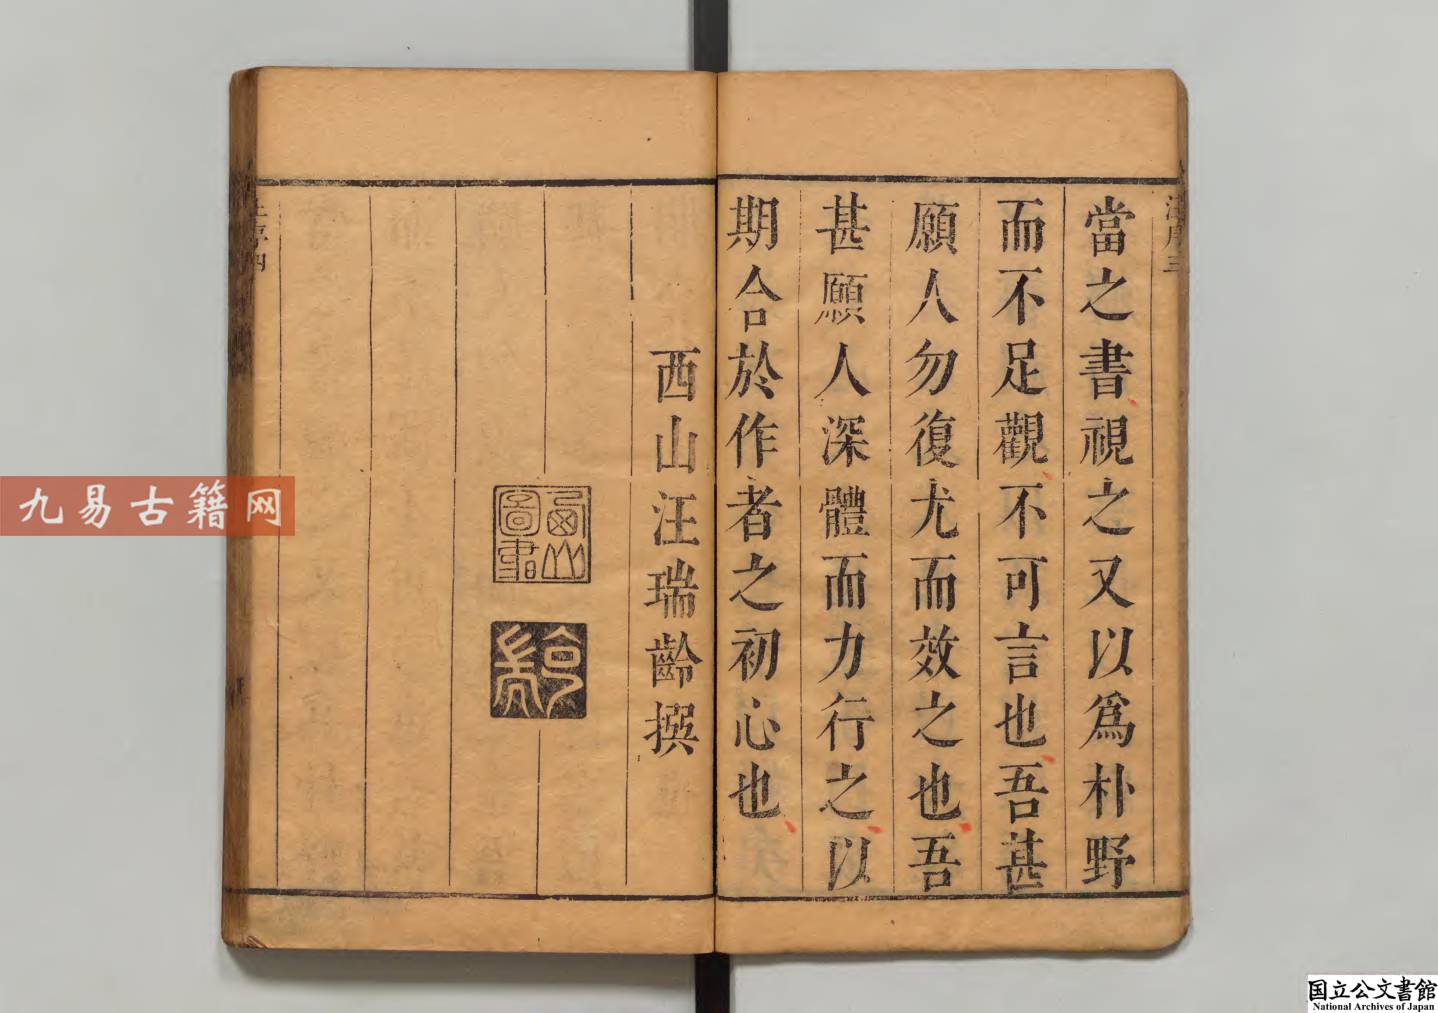 當之書視之又以爲朴野
而不足觀不可言也吾甚
願人勿復尤而效之也吾
甚願人深體而力行之以
期合於作者之初心也
西山汪瑞齡撰
酉山
圖書
九易古籍网
国立公文書館
National Archives of Japan